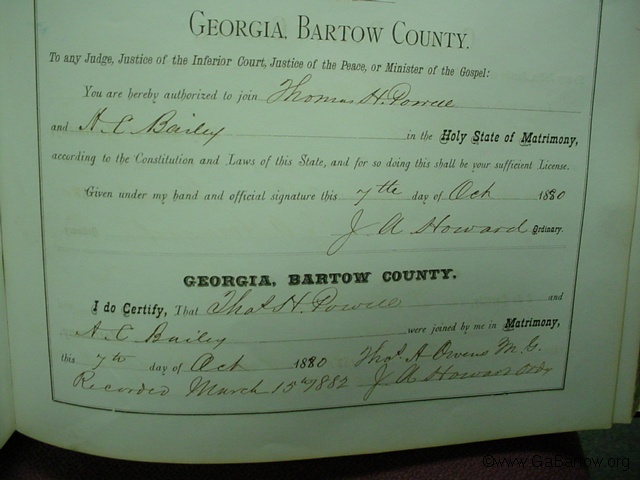 GEORGIA, BARTOW COUNTY.
To any Judge, Justice of the Inferior Court, Justice of the Peace, or Minister of the Gospel:
You are hereby authorized to join Thomas H. Powell
and A. C. Bailey in the Holy State of Matrimony,
according to the Constitution and Laws of this State, and for so doing this shall be your sufficient License.
Given under my hand and official signature this 7th day of Oct 1880
J. A Howard Ordinary.
GEORGIA, BARTOW COUNTY.
I do Certify, That Thos. H. Powell and
A. C. Bailey were joined by me in Matrimony,
this 7th day of Oct 1880 Thos. A Owens M. G.
Recorded March 15th 1882 J A Howard Ordr
©www.GaBartow.org